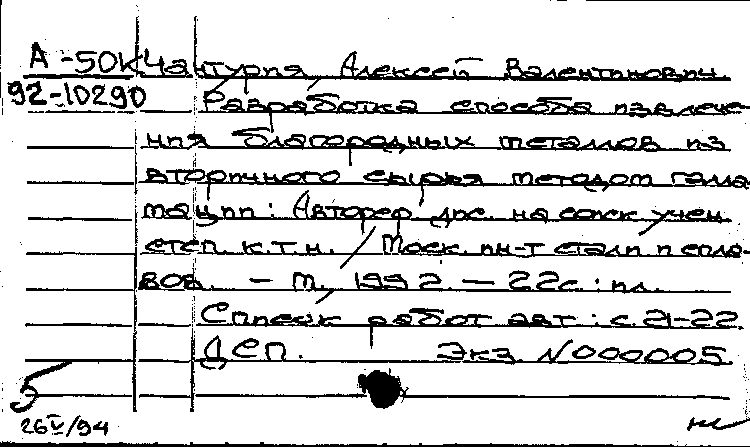 А-50К Чантурия, Алексей Валентинович.
92-10290 Разработка способа извлече-
ния благородных металлов из
вторичного сырья методом галла-
мации: Автореф. дис. на соиск. учен.
степ. к.т.н. / Моск. ин-т стали и спла-
вов. - М., 1992. - 22с.: ил.
Список работ авт.: с. 21-22
ДСП. Экз. N000005
5
26V/94